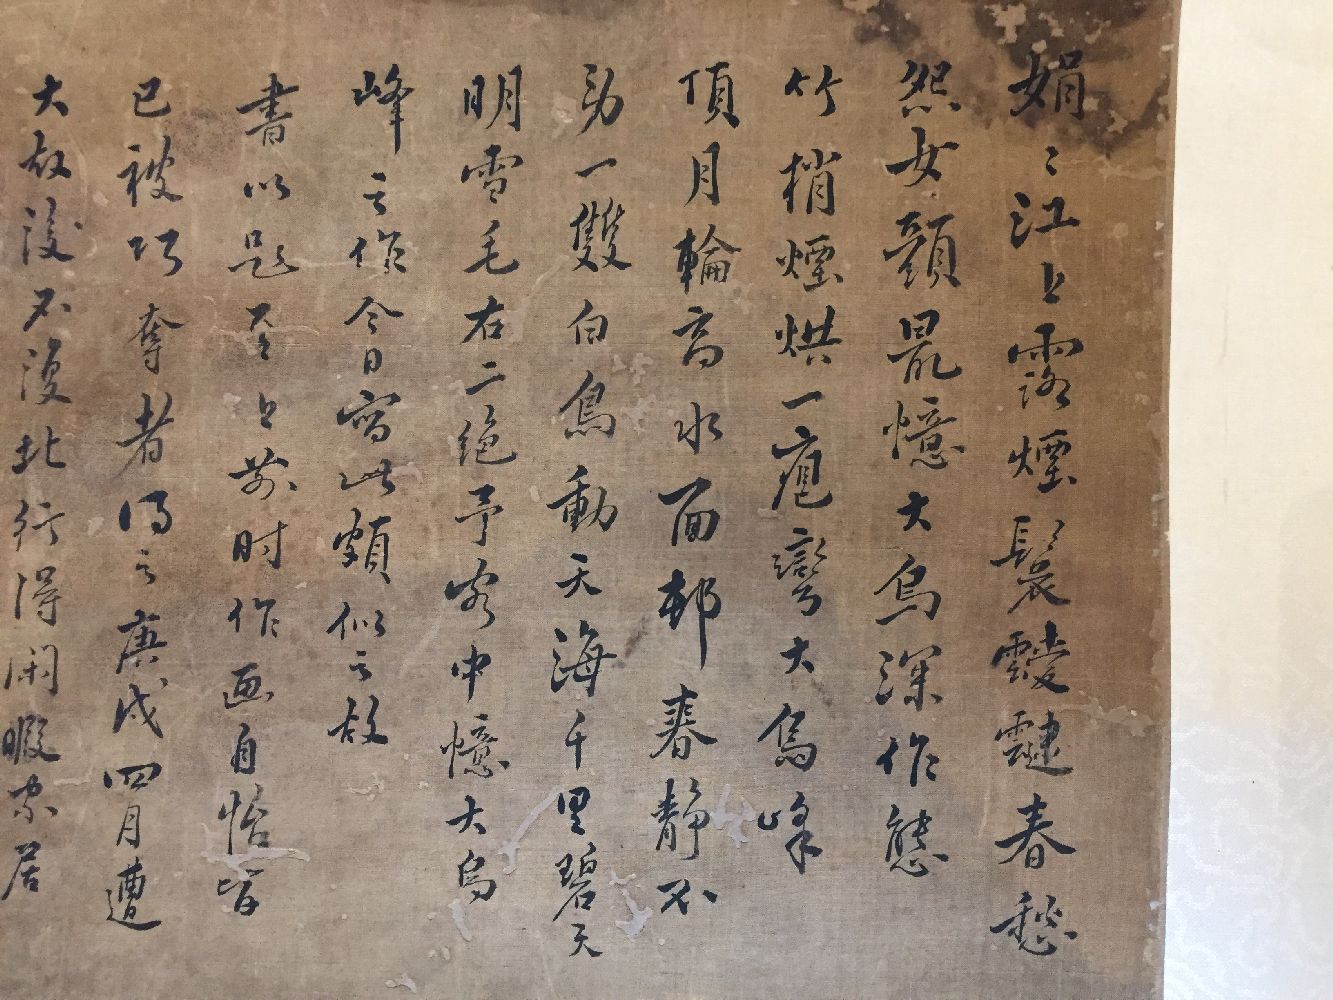 娟〻江上露煙鬟靉靆春愁
怨女顏最憶大烏深作態
竹梢煙烘一痕彎大烏峰
頂月輪高水面邨春靜不
勞一雙白鳥動天海千里碧天
明雪毛右二絕予客中憶大烏
峰之作今日寫此頗似之故
書以題 上前时作画自怡皆
已被巧奪者得之庚戌四月遭
大故後不復北行得閑暇家居